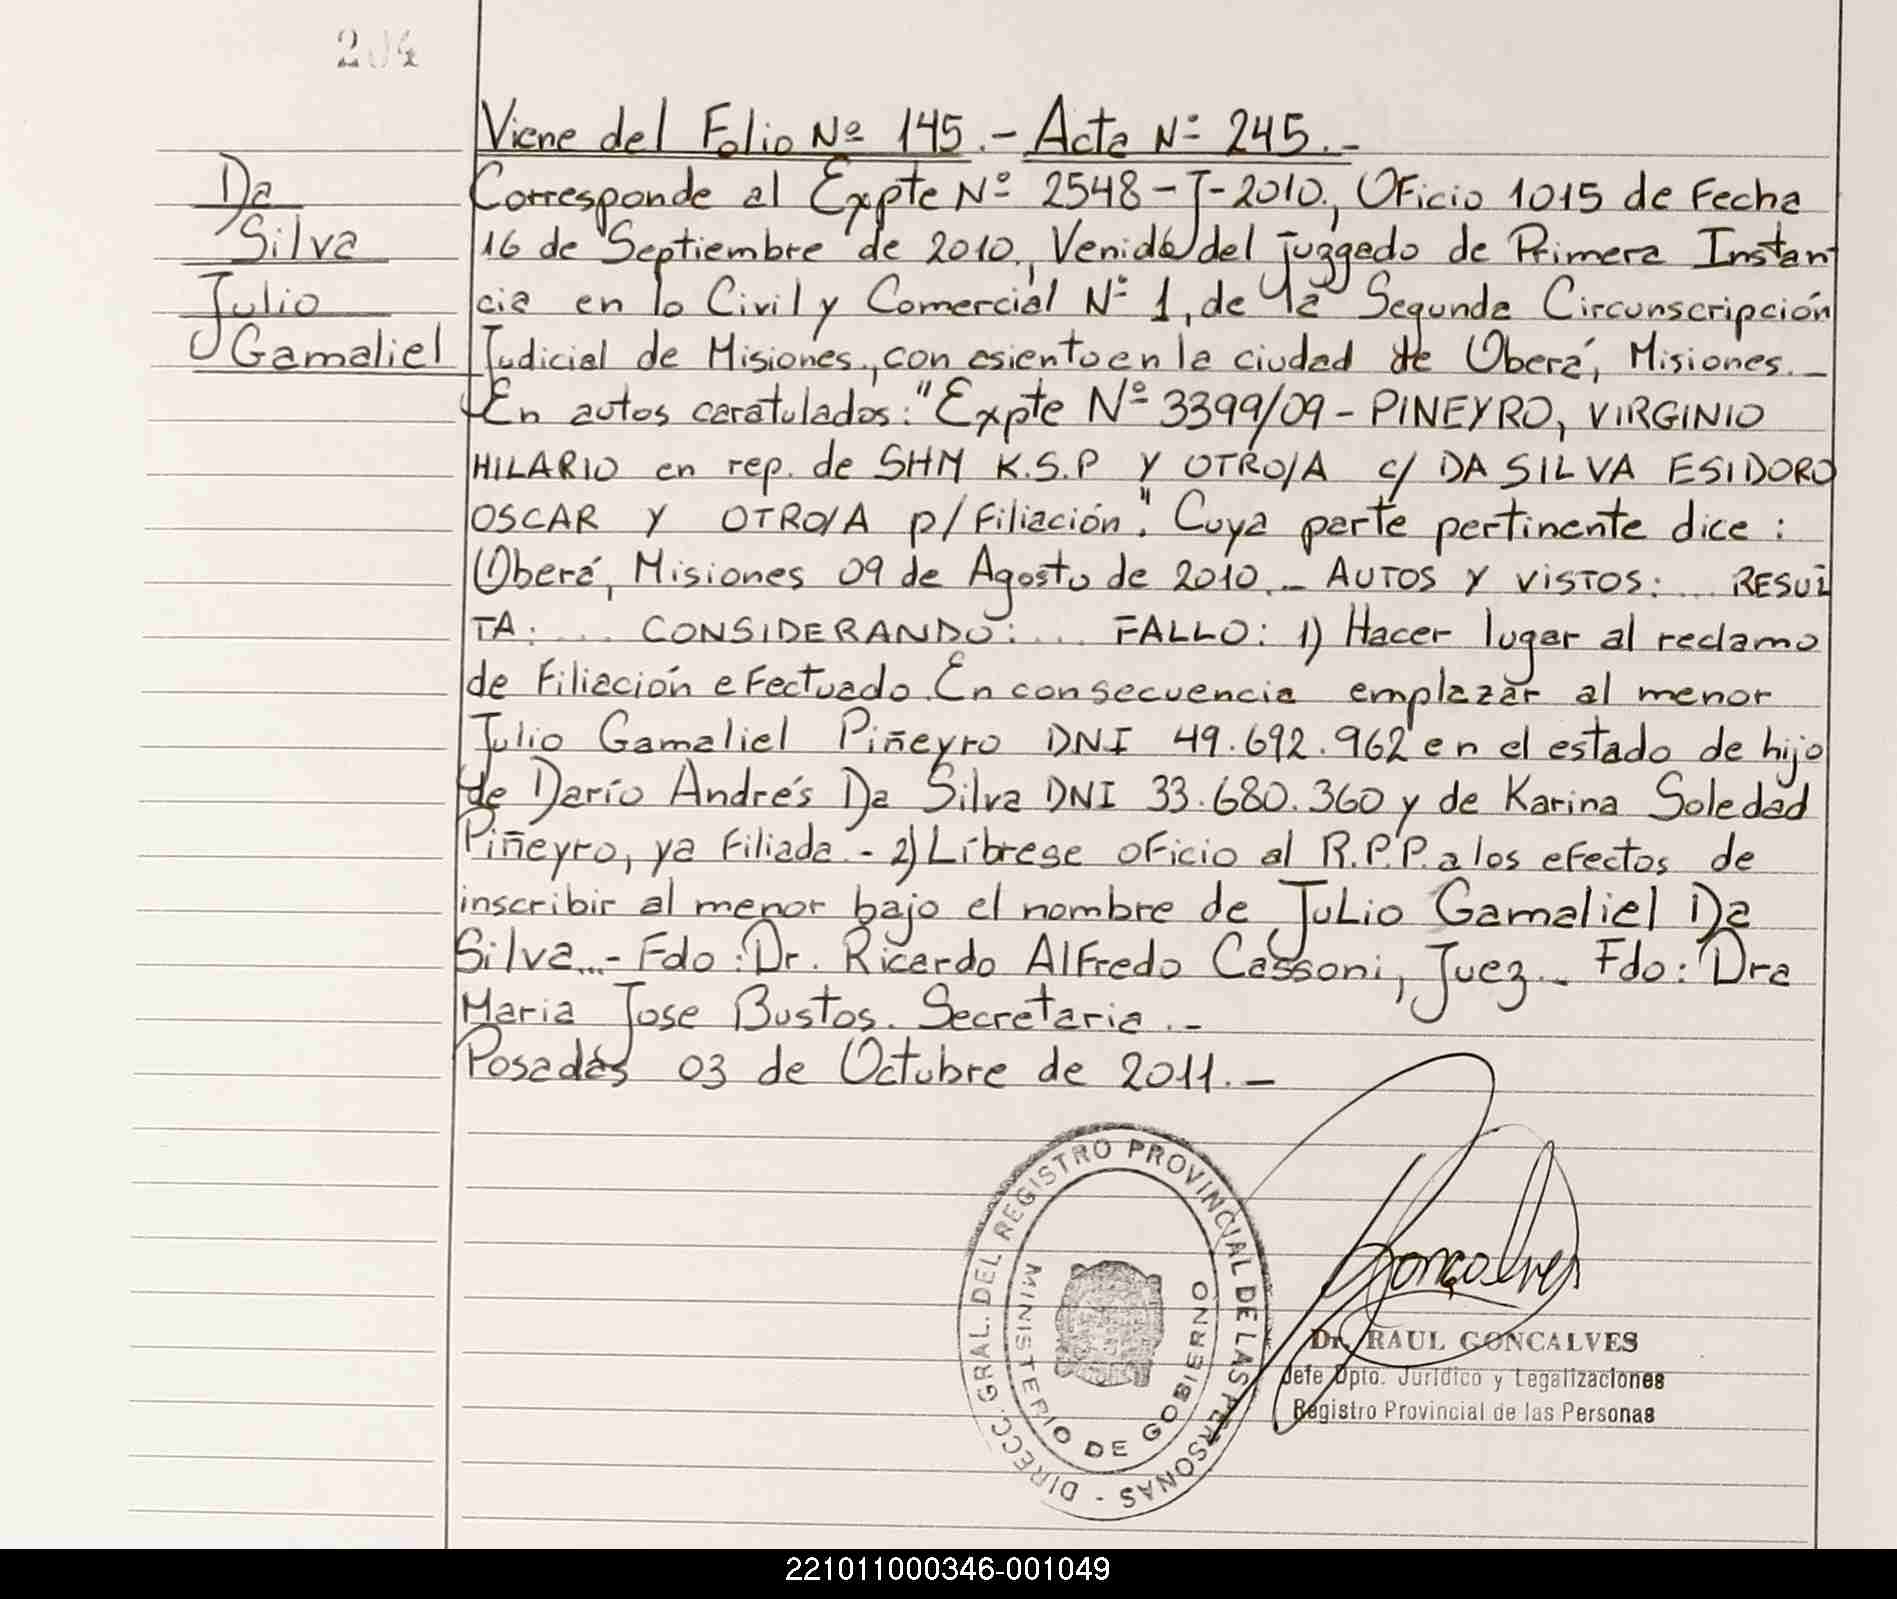 204
Da
Silva
Julio
Gamaliel
Viene del Folio Nº 145.- Acta Nº 245.-
Corresponde al Expte Nº 2548-J-2010., Oficio 1015 de Fecha
16 de Septiembre de 2010., Venido del juzgado de Primera Instan
cia en lo Civil y Comercial Nº 1, de la Segunda Circunscripción
Judicial de Misiones, con asiento en la ciudad de Oberá, Misiones.-
En autos caratulados: "Expte Nº 3399/09 - PINEYRO, VIRGINIO
HILARIO en rep. de SHM K.S.P Y OTRO/A c/ DA SILVA ESIDORO
OSCAR Y OTRO/A p/ Filiación". Cuya parte pertinente dice:
Oberá, Misiones 09 de Agosto de 2010.- AUTOS Y VISTOS: ... RESUL
TA: ... CONSIDERANDO: ... FALLO: 1) Hacer lugar al reclamo
de Filiación efectuado. En consecuencia emplazar al menor
Julio Gamaliel Piñeyro DNI 49.692.962 en el estado de hijo
de Darío Andrés Da Silva DNI 33.680.360 y de Karina Soledad
Piñeyro, ya filiada.- 2) Líbrese oficio al R.P.P. a los efectos de
inscribir al menor bajo el nombre de Julio Gamaliel Da
Silva...- Fdo: Dr. Ricardo Alfredo Cassoni, Juez.- Fdo: Dra
Maria Jose Bustos. Secretaria.-
Posadas 03 de Octubre de 2011.-
DIRECC. GRAL. DEL REGISTRO PROVINCIAL DE LAS PERSONAS -
MINISTERIO DE GOBIERNO
Goncalves
Dr. RAUL GONCALVES
Jefe Dpto. Jurídico y Legalizaciones
Registro Provincial de las Personas
221011000346-001049